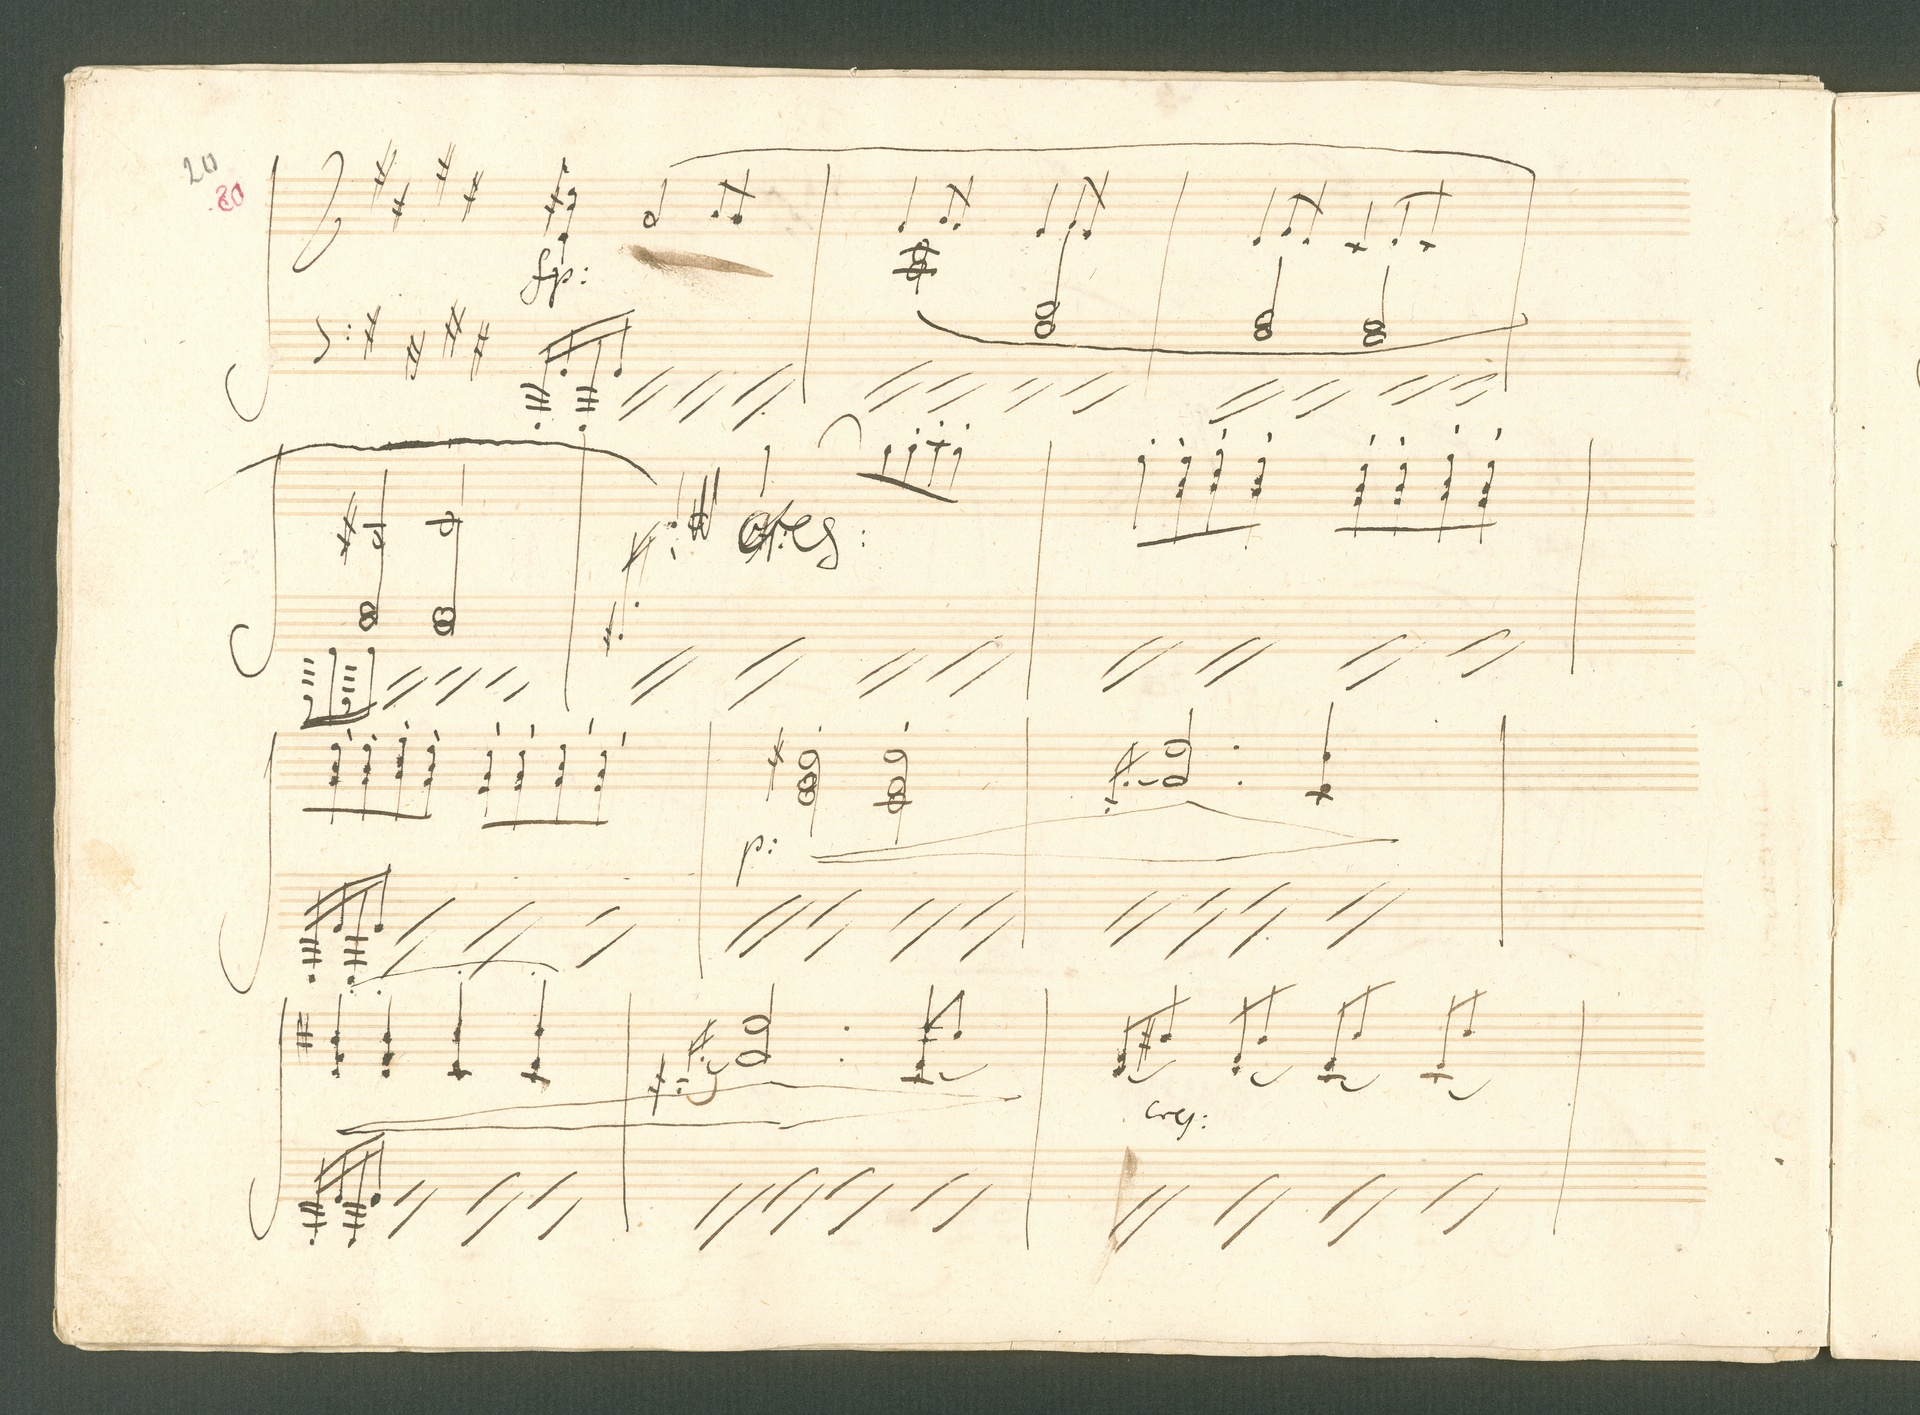 20
20
fp:
cres:
p:
cres: